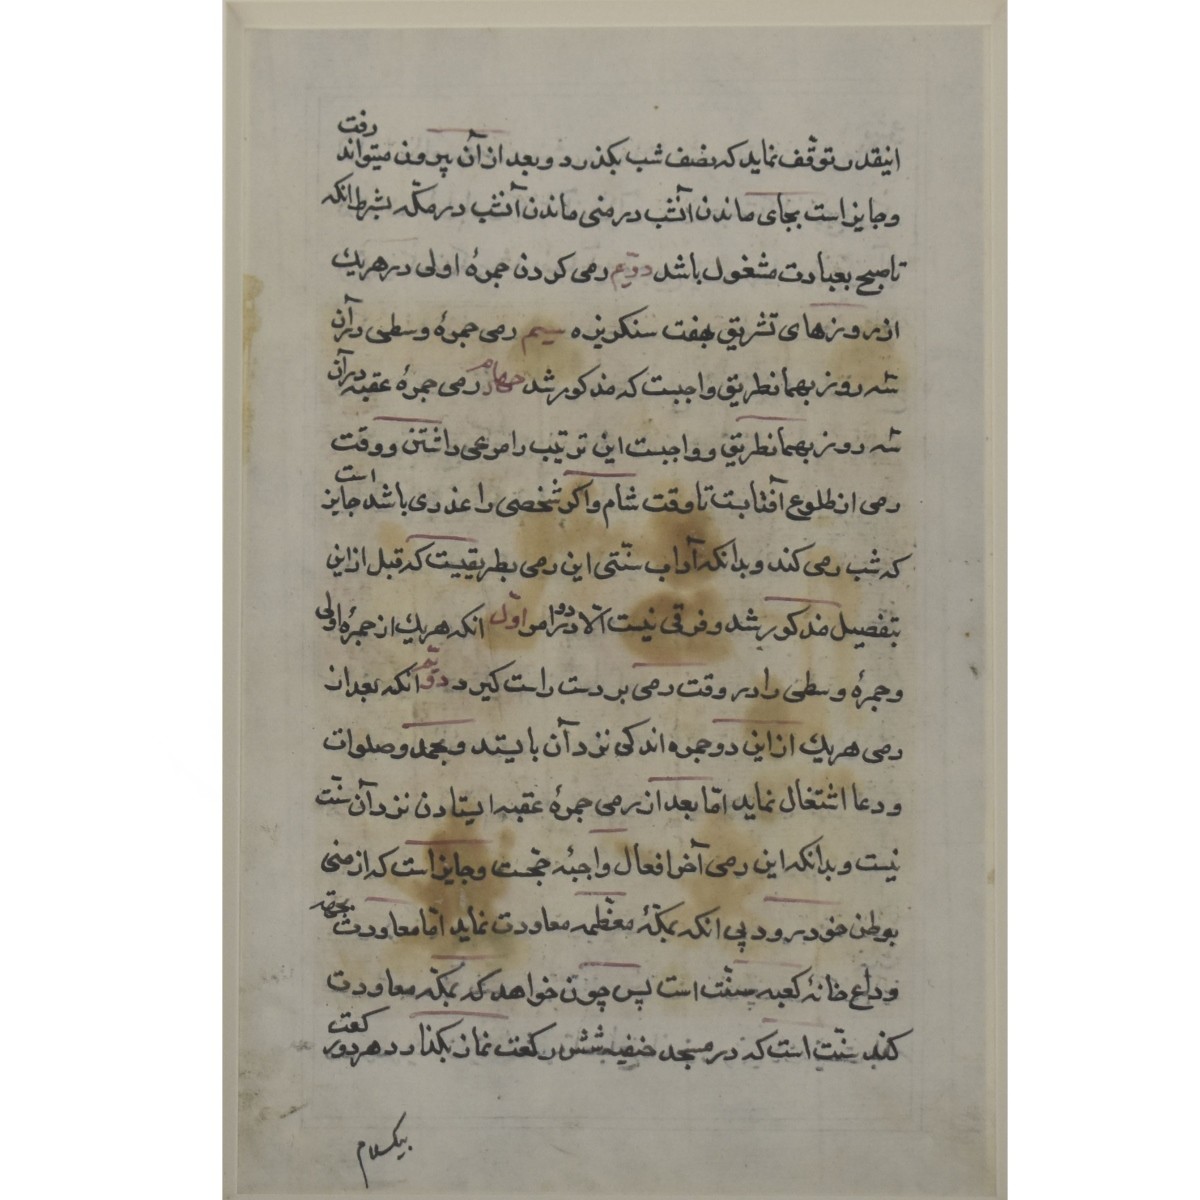 اینقدر توقف نماید که نصف شب بکذرد و بعد از آن بیرون میتواند رفت
و جایز است بجای ماندن آنشب در منی ماندن آنشب در مکه بشرط انکه
تا صبح بعبادت مشغول باشد دویم رمی کردن جمرهٔ اولی در هریک
از روزهای تشریق بهفت سنکریزه سیم رمی جمرهٔ وسطی در آن
سه روز بهمانطریق واجبست که مذکور شد چهارم رمی جمرهٔ عقبه در آن
سه روز بهمانطریق و واجبست این ترتیب را مرعی داشتن و وقت
رمی از طلوع آفتابست تا وقت شام و اکر شخصی را عذری باشد جایز است
که شب رمی کند و بدانکه آداب سنتی این رمی بطریقیست که قبل از این
بتفصیل مذکور شد و فرقی نیست الا در دو امر اول انکه هریک از جمرهٔ اولی
و جمرهٔ وسطی را در وقت رمی بر دست راست کیرد دویم انکه بعد از
رمی هریک از این دو جمره اندکی نزد آن بایستد و بحمد و صلوات
و دعا اشتغال نماید اما بعد از رمی جمرهٔ عقبه ایستادن نزد آن سنت
نیست و بدانکه این رمی آخر افعال واجبهٔ حجست و جایز است که از منی
بوطن خود رود بی انکه بمکهٔ معظمه معاودت نماید اما معاودت بجهة
وداع خانهٔ کعبه سنت است پس چون خواهد که بمکه معاودت
کند سنت است که در مسجد خیفه شش رکعت نماز بکذارد هر دو رکعت
بیکسلام